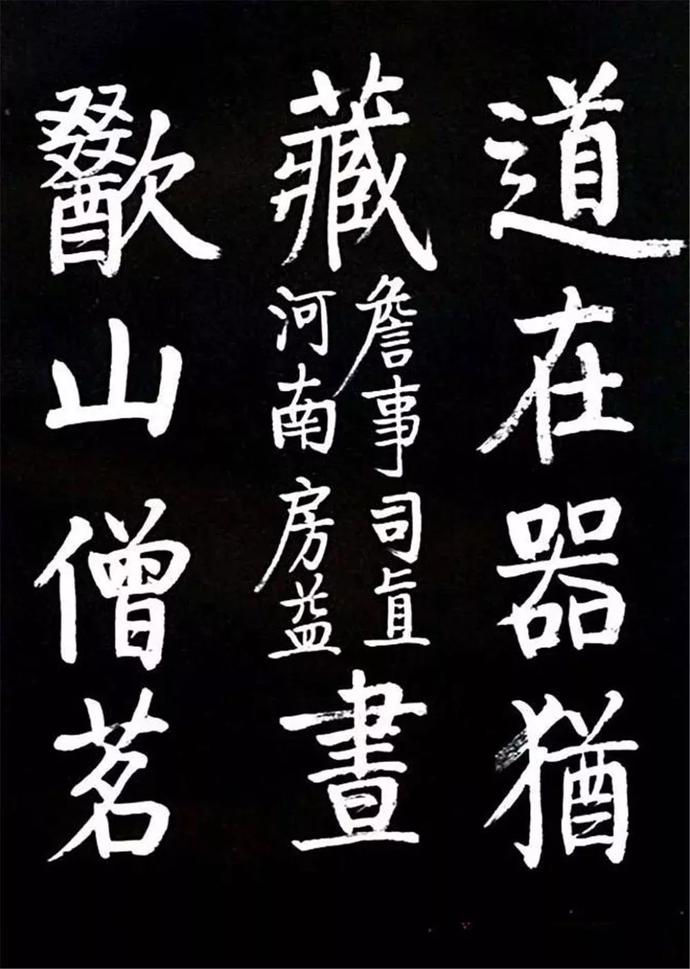 道在器猶
藏
詹事司直
河南房益
晝
歠山僧茗